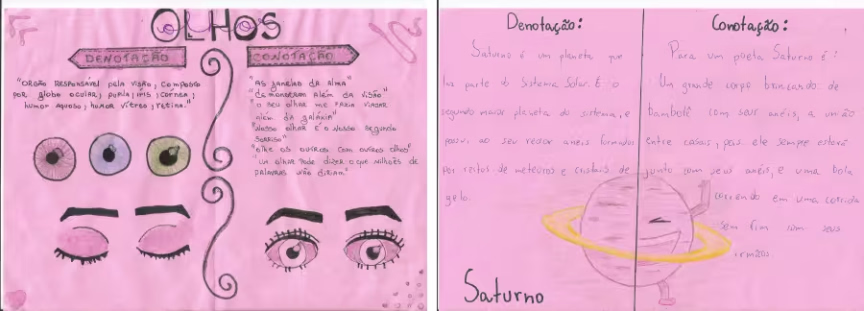 OLHOS
DENOTAÇÃO
"ORGÃO RESPONSÁVEL PELA VISÃO; COMPOSTO
POR GLOBO OCULAR; PUPILA; IRIS; CÓRNEA;
HUMOR AQUOSO; HUMOR VÍTREO; RETINA."
CONOTAÇÃO
"AS JANELAS DA ALMA"
"DEMONSTRAM ALÉM DA VISÃO"
"O SEU OLHAR ME FARIA VIAJAR
ALÉM DA GALÁXIA"
"NOSSO OLHAR É O NOSSO SEGUNDO
SORRISO"
"OLHE OS OUTROS COM OUTROS OLHOS"
"UM OLHAR PODE DIZER O QUE MILHÕES DE
PALAVRAS NÃO DIRIAM"
Denotação:
Saturno é um planeta que
faz parte do Sistema Solar. É o
segundo maior planeta do sistema, e
possui ao seu redor anéis formados
por restos de meteoros e cristais de
gelo.
Conotação:
Para um poeta Saturno é:
Um grande corpo brincando de
bambolê com seus anéis, a união
entre casais, pois ele sempre estará
junto com seus anéis, e uma bola
correndo em uma corrida
sem fim com seus
irmãos.
Saturno